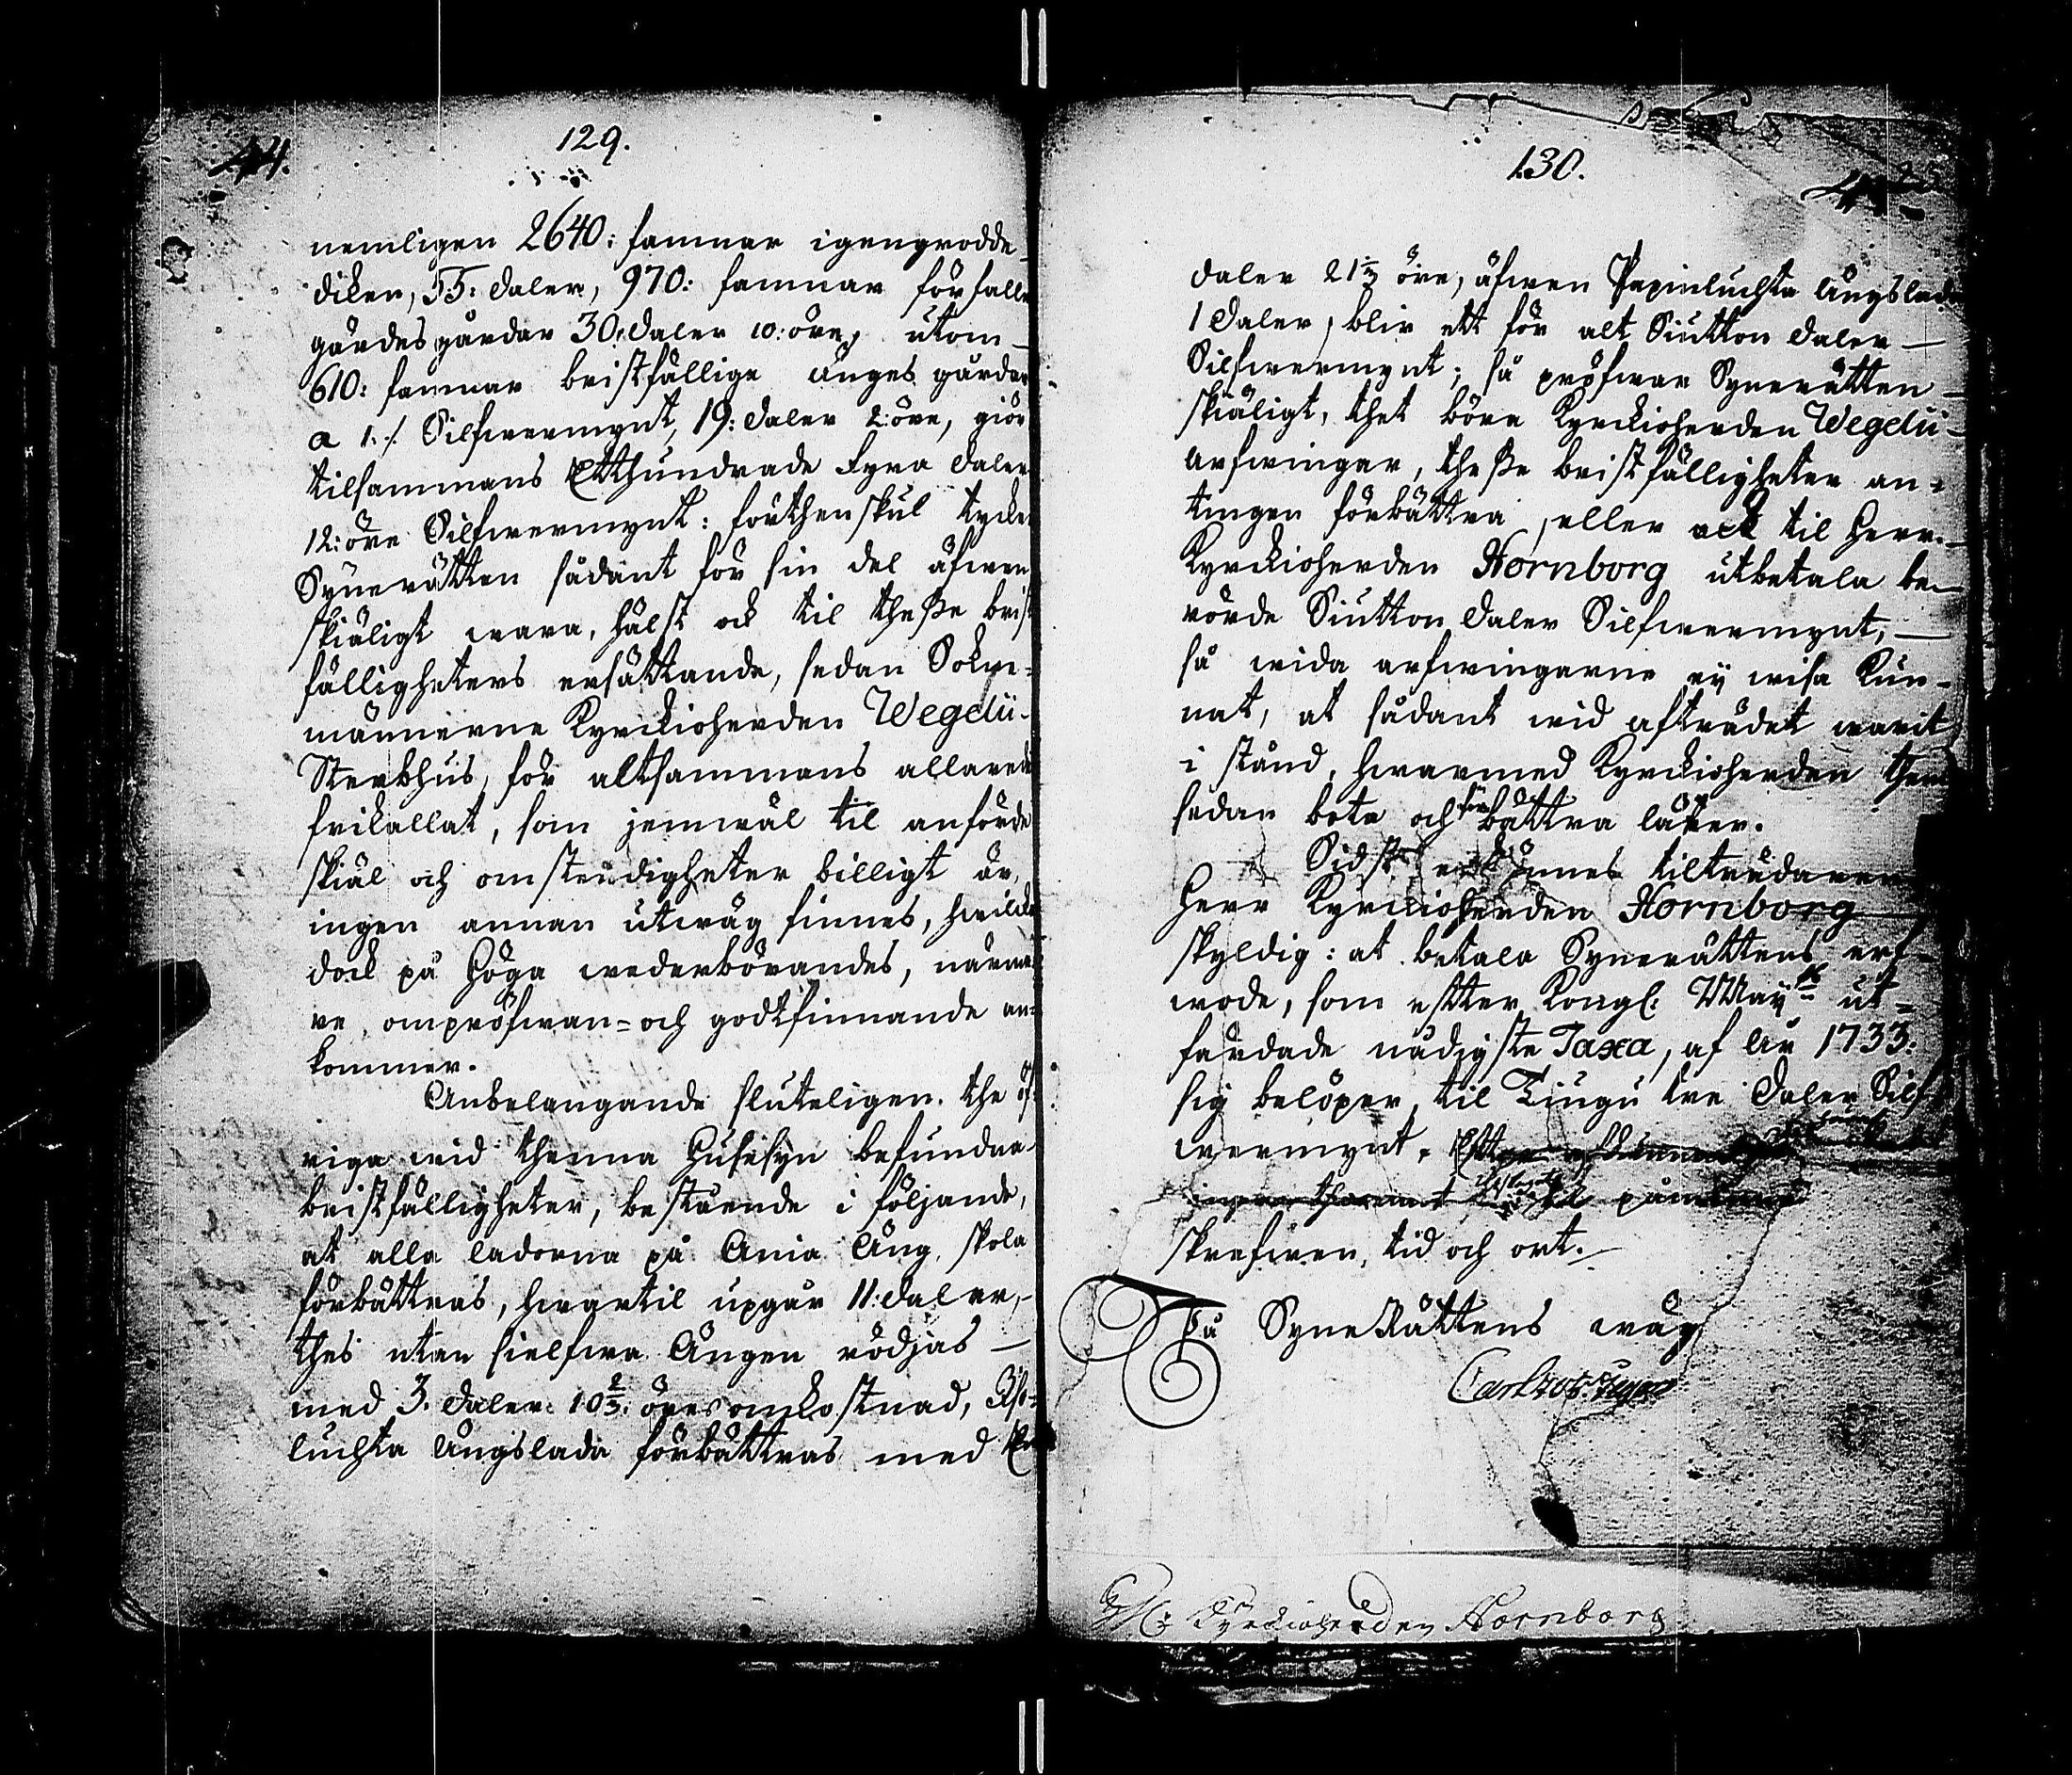 44.
129.
nemligen 2640: famnar igengrodde
diken, 55. daler, 970: famnar förfalln
gärdesgårdar 30. daler 10: öre, utom
610: famnar bristfällige änges gårdar
a 1 ./. Silfwermynt, 19: daler 2: öre, giör
tilsammans Etthundrade fyra daler
12: öre Silfwermynt: förthenskul tycke
Synerätten sådant för sin del äfwen
skiäligt wara, hälst ock til theße brist
fälligheters ersättande, sedan Sokne-
männerne Kyrckioherden Wegelii
Sterbhus, för altsammans allarede
frikallat, som jemwäl til anförde
skiäl och omständigheter billigt är,
ingen annan utwäg finnes, hwilcke
dock på Höga wederbörandes, närma-
re, ompröfwan= och godtfinnande an=
kommer.
Anbelangande sluteligen the öf-
riga wid thenna Husesyn befundne
bristfälligheter, bestående i följande,
at alla ladorna på Ania Äng, skola
förbättras, hwartil upgår 11: daler,
thes utan sielfwa Ängen rödjas
med 3. daler 10 2/3: öres omkostnad,
luchta Ängslada förbättras med
130.
daler 21 1/3 öre, äfwen Papinluchta Ängslada
1 daler, blir ett för alt Siutton daler
Silfwermynt; så pröfwar Synerätten
skiäligt, thet böra Kyrckioherden Wegelii
arfwingar, theße bristfälligheter an=
tingen förbättra, eller ock til Herr
Kyrckioherden Hornborg utbetala be-
rörde Siutton daler Silfwermynt,
så wida arfwingarne ey wisa kun-
nat, at sådant wid afträdet warit
i stånd, hwarmed Kyrckioherden them
sedan bota och förbättra låter.
Sidst erkännes tilträdaren
Herr Kyrckioherden Hornborg
skyldig: at betala Synerättens arf-
wode, som efter Kongl. May:tz ut-
färdade nådigste Taxa, af år 1733:
sig belöper, til Tiugu tre daler Silf
wermynt.
skrefwen, tid och ort.
På SyneRättens wägnar
Kyrckioherden Hornborg